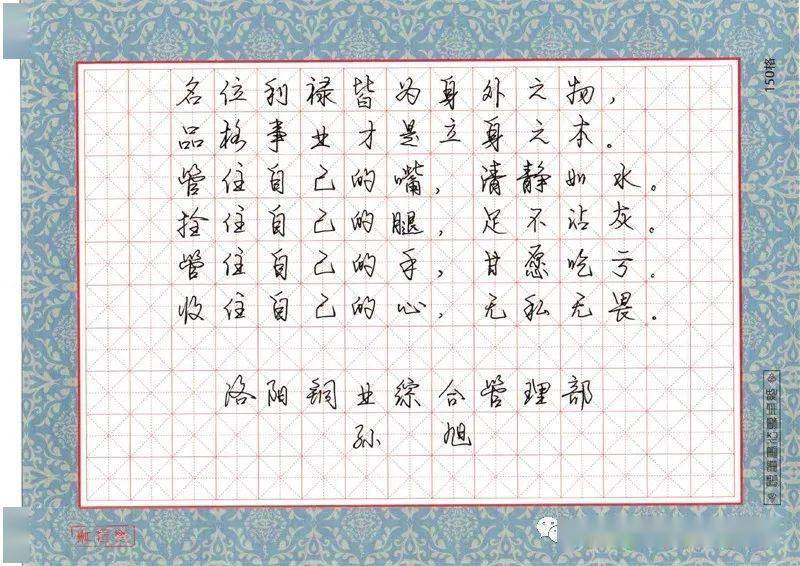 名位利禄皆为身外之物，
品格事业才是立身之本。
管住自己的嘴，清静如水。
拴住自己的腿，足不沾灰。
管住自己的手，甘愿吃亏。
收住自己的心，无私无畏。
洛阳铜业综合管理部
孙旭
150格